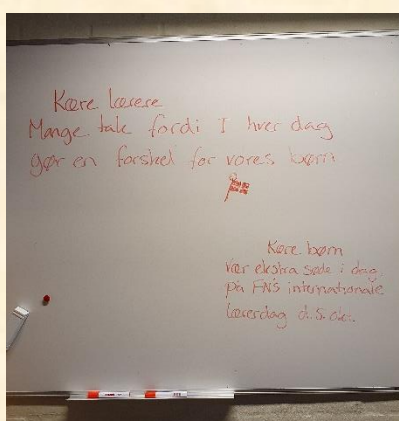 Kære lærere
Mange tak fordi I hver dag
gør en forskel for vores børn
Kære børn
vær ekstra søde i dag
på FN's internationale
lærerdag d. 5. okt.